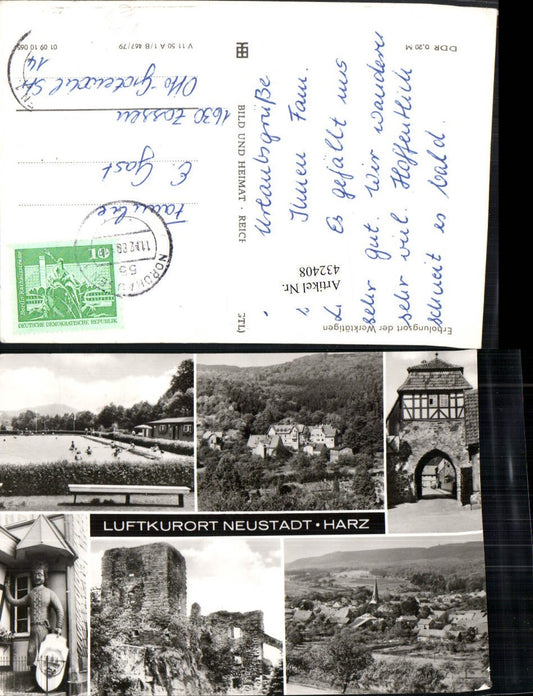 Urlaubsgrüße
Ihnen Fam.
Es gefällt uns
sehr gut. Wir wandern
sehr viel. Hoffentlich
schneit es bald.
Familie
E. Gast
1630 Zossen
Otto-Grotewohl Str.
14
DDR 0,20 M
V 11 50 A 1/B 467/79
01 09 10 065
BILD UND HEIMAT · REICH
Erholungsort der Werktätigen
Artikel Nr.
432408
10
DEUTSCHE DEMOKRATISCHE REPUBLIK
LUFTKURORT NEUSTADT · HARZ